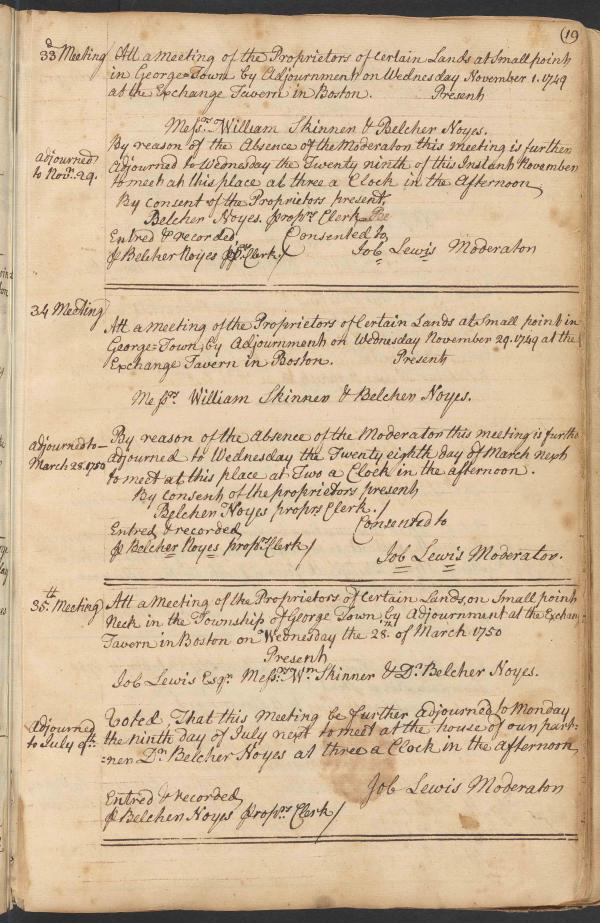 (19)
33d Meeting
Att a Meeting of the Proprietors of Certain Lands at Small point
in George=Town by Adjournment on Wednesday November 1. 1749
at the Exchange Tavern in Boston. Present
Messrs William Skinner & Belcher Noyes.
By reason of the Absence of the Moderator this meeting is further
adjourned
to Novr. 29.
Adjourned to Wednesday the Twenty ninth of this Instant November
to meet at this place at three a Clock in the Afternoon
By Consent of the Proprietors present,
Belcher Noyes. proprs Clerk
Entred & recorded, Consented to,
⅌ Belcher Noyes proprs Clerk/ Job Lewis Moderator
34 Meeting
Att a Meeting of the Proprietors of Certain Lands at Small point in
George=Town, by Adjournment on Wednesday November 29. 1749 at the
Exchange Tavern in Boston. Present
Messrs. William Skinner & Belcher Noyes.
By reason of the Absence of the Moderator this meeting is furthe
adjourned to—
March 28. 1750
adjourned to Wednesday the Twenty eighth day of March next
to meet at this place at Two a Clock in the afternoon.
By consent of the proprietors present
Belcher Noyes proprs Clerk./
Entred & recorded, Consented to
⅌ Belcher Noyes proprs Clerk/ Job Lewis Moderator.
35th Meeting
Att a Meeting of the Proprietors of Certain Lands, on Small point
Neck in the Township of George Town by Adjournment at the Exchang
Tavern in Boston on Wednesday the 28th of March 1750
Present
Job Lewis Esqr. Messrs. Wm Skinner & Dr. Belcher Noyes.
Voted That this Meeting be further adjourned to Monday
Adjourned
to July 9th:
the ninth day of July next to meet at the house of our part-
=ner Dr Belcher Noyes at three a Clock in the afternoon,
Job Lewis Moderator
Entred & recorded,
⅌ Belcher Noyes proprs Clerk/